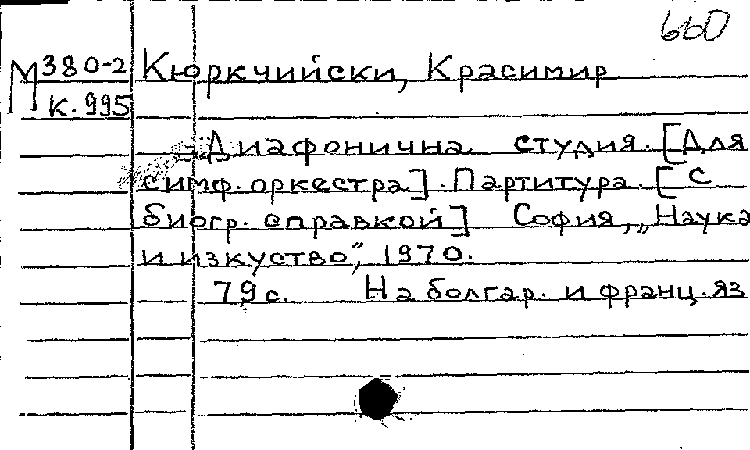 660
М380-2 Кюркчийски, Красимир
К.995
Диафонична студия. [Для
симф. оркестра]. Партитура. [С
биогр. справкой] София, „Наука
и изкуство", 1970.
79с. На болгар. и франц. яз